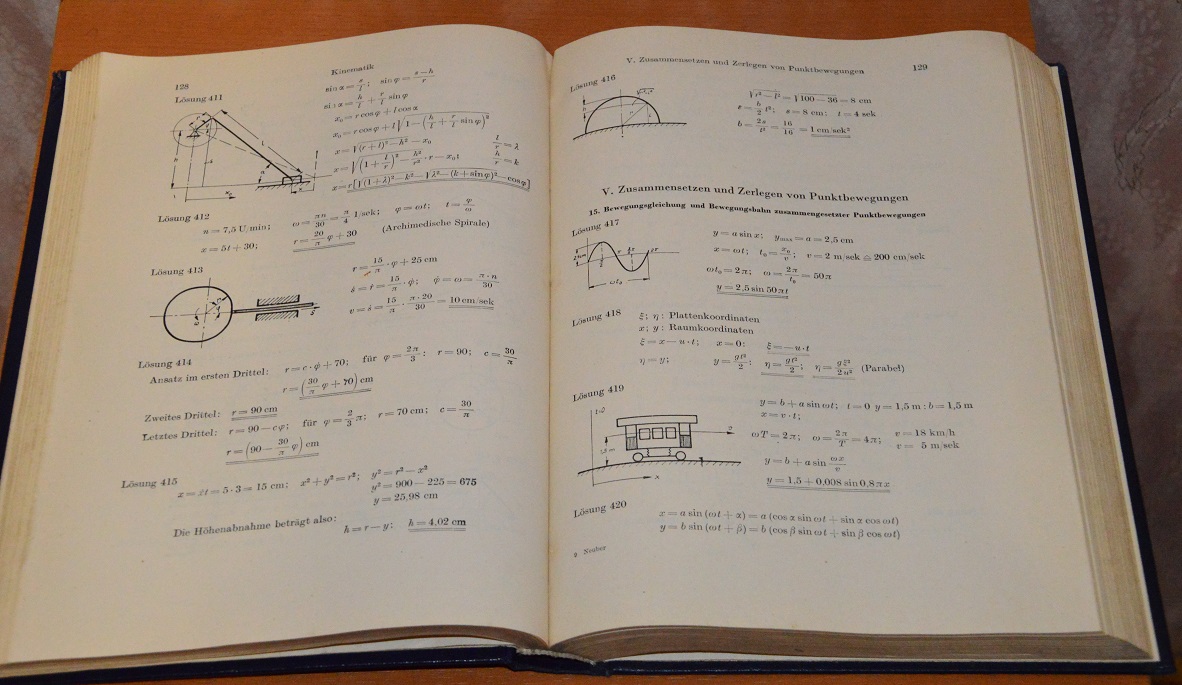 128
Kinematik
Lösung 411
sin α = s/l; sin φ = (s−h)/r
sin α = h/l + r/l sin φ
x₀ = r cos φ + l cos α
x₀ = r cos φ + l √(1 − (h/l + r/l sin φ)²)
x = √((r + l)² − h²) − x₀
l/r = λ
h/r = k
Lösung 412
n = 7,5 U/min; ω = πn/30 = π/4 1/sek; φ = ωt; t = φ/ω
x = 5t + 30; r = 20/π φ + 30 (Archimedische Spirale)
Lösung 413
r = 15/π · φ + 25 cm
ṡ = ṙ = 15/π · φ̇; φ̇ = ω = π · n/30
v = ṡ = 15/π · π · 20/30 = 10 cm/sek
Lösung 414
Ansatz im ersten Drittel: r = c · φ + 70; für φ = 2π/3: r = 90; c = 30/π
r = (30/π φ + 70) cm
Zweites Drittel: r = 90 cm
Letztes Drittel: r = 90 − cφ; für φ = 2/3 π; r = 70 cm; c = 30/π
r = (90 − 30/π φ) cm
Lösung 415
x = ẋt = 5 · 3 = 15 cm; x² + y² = r²; y² = r² − x²
y² = 900 − 225 = 675
y = 25,98 cm
Die Höhenabnahme beträgt also: h = r − y; h = 4,02 cm
V. Zusammensetzen und Zerlegen von Punktbewegungen
129
Lösung 416
= √(100 − 36) = 8 cm
s = b/2 t²; s = 8 cm; t = 4 sek
b = 2s/t² = 16/16 = 1 cm/sek²
V. Zusammensetzen und Zerlegen von Punktbewegungen
15. Bewegungsgleichung und Bewegungsbahn zusammengesetzter Punktbewegungen
Lösung 417
y = a sin x; y max = a = 2,5 cm
x = ωt; t₀ = x₀/v; v = 2 m/sek ≙ 200 cm/sek
ωt₀ = 2π; ω = 2π/t₀ = 50π
y = 2,5 sin 50πt
Lösung 418
ξ; η : Plattenkoordinaten
x; y : Raumkoordinaten
ξ = x − u · t; x = 0; ξ = −u · t
η = y; y = gt²/2; η = gt²/2; η = gξ²/2u² (Parabel)
Lösung 419
t=0
y = b + a sin ωt; t = 0 y = 1,5 m : b = 1,5 m
x = v · t;
ωT = 2π; ω = 2π/T = 4π; v = 18 km/h
v = 5 m/sek
y = b + a sin ωx/v
y = 1,5 + 0,008 sin 0,8πx
x
Lösung 420
x = a sin (ωt + α) = a (cos α sin ωt + sin α cos ωt)
y = b sin (ωt + β) = b (cos β sin ωt + sin β cos ωt)
9 Neuber